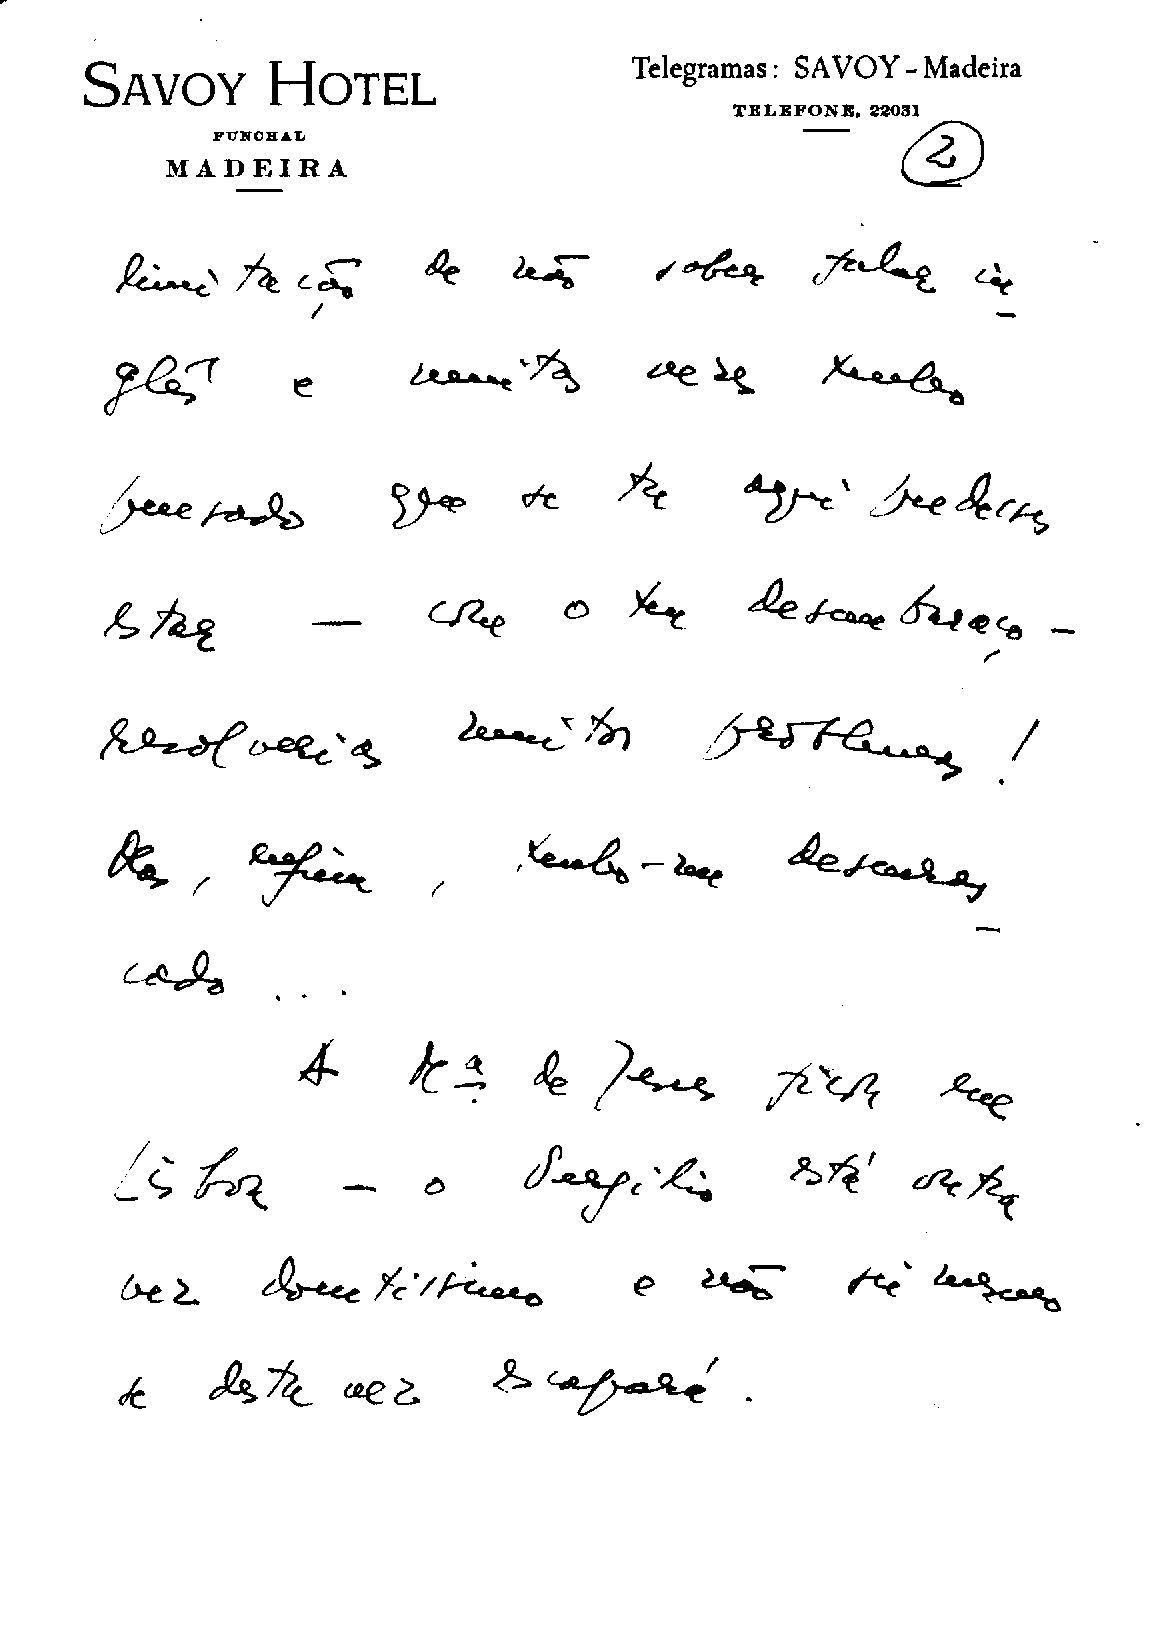 SAVOY HOTEL
FUNCHAL
MADEIRA
Telegramas: SAVOY - Madeira
TELEFONE, 22031
2
limitação de não saber falar in-
glês e muitas vezes tenho
pensado que se tu aqui pudesses
estar — com o teu desembaraço —
resolverias muitos problemas!
Mas, enfim, tenho-me desenras-
cado...
A Mª de Jesus ficou em
Lisboa — o Vergílio está outra
vez doentíssimo e não sei mesmo
se desta vez escapará.